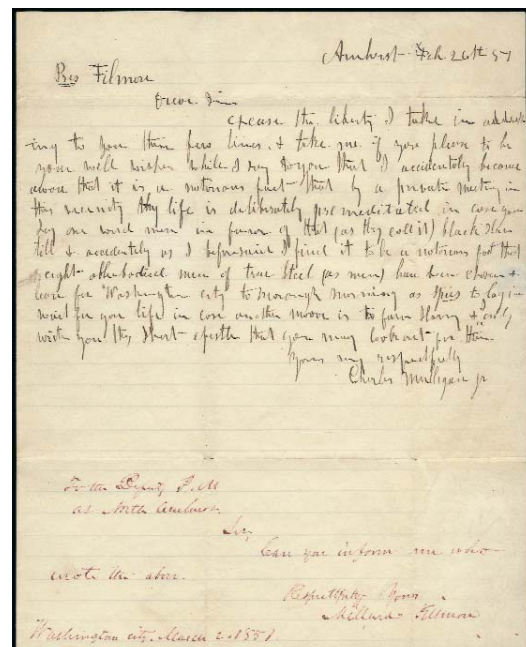 Amherst Feb 26th 51
Pres Filmore
Dear Sir
excuse the liberty I take in address
ing to you these few lines, & take me if you please to be
your well wisher while I say to you that I accidentaly became
awore that it is a notorious fact that by a private meeting in
this vecinity thy life is deliberately premeditated in case you
say one word more in favor of that (as they coll it) black slave
bill & accidently as I beforesaid I find it to be a notorious fact that
eight athebodied men of true Steel (as men) have been chosen &
leave for Washington city to morough morning as Spies to lay in
wait for you life in case another moove is to farm Slavery &
with you this short epistle that you may lookout for them
Yours very respectfully
Charles Mulligan jr
To the Deputy P. M
at North Amherst
Sir,
Can you inform me who
wrote the above.
Respectfully Yours
Millard Fillmore
Washington city. March 2. 1851.